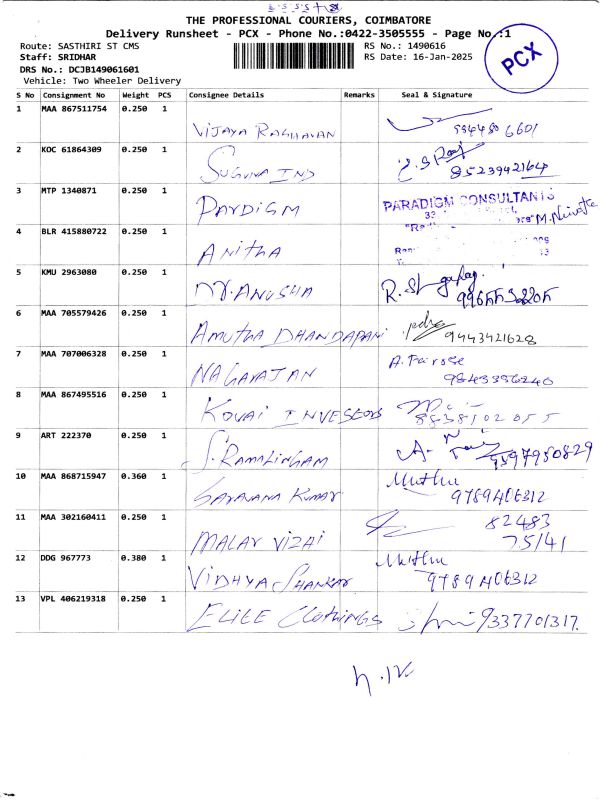 THE PROFESSIONAL COURIERS, COIMBATORE
Delivery Runsheet - PCX - Phone No.:0422-3505555 - Page No.:1
Route: SASTHIRI ST CMS
RS No.: 1490616
Staff: SRIDHAR
RS Date: 16-Jan-2025
PCX
DRS No.: DCJB149061601
Vehicle: Two Wheeler Delivery
S No Consignment No Weight PCS Consignee Details Remarks Seal & Signature
1 MAA 867511754 0.250 1 VIJAYA RAGHAVAN
2 KOC 61864309 0.250 1 SUGUNA IND 8523942164
3 MTP 1340871 0.250 1 PARDIGM PARADIGM CONSULTANTS
4 BLR 415880722 0.250 1 ANITHA
5 KMU 2963080 0.250 1 DR.ANUSHA
6 MAA 705579426 0.250 1 AMUTHA DHANDAPANI 9443421628
7 MAA 707006328 0.250 1 NAGARAJAN 9843356240
8 MAA 867495516 0.250 1 KOVAI INVESTORS 8838102055
9 ART 222370 0.250 1 S.RAMALINGAM 9597950829
10 MAA 868715947 0.360 1 SARAVANA KUMAR Muthu 9789406312
11 MAA 302160411 0.250 1 MALAR VIZAI 82483
75141
12 DDG 967773 0.380 1 VIDHYA SHANKAR Muthu 9789406312
13 VPL 406219318 0.250 1 ELITE CLOTHINGS 9337701317.